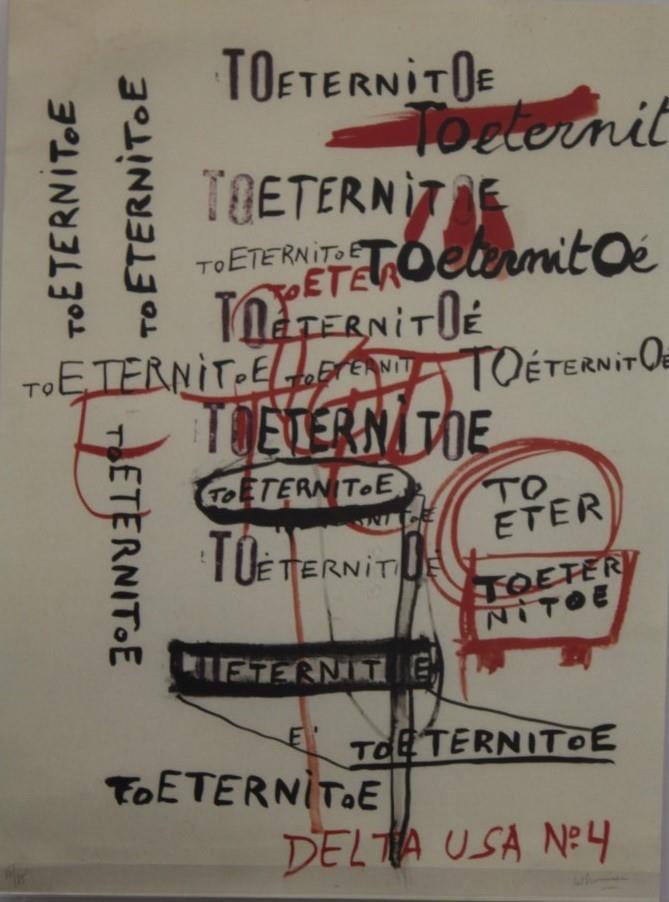 TOETERNiTOE
Toeternit
TOETERNiTOE
TOETERNITOE
TOeternitOé
TOETER
TOETERNiTOÉ
TOETERNiTOE
TOETERNIT
TOÉTERNITOE
TOETERNiTOE
TOETERNITOE
TO
ETER
TOETERNITiOE
TOETER
NiTOE
ETERNIT E
E'
TOETERNITOE
TOETERNiTOE
DELTA USA Nº4
TOETERNiTOE
TOETERNiTOE
TOETERNITOE